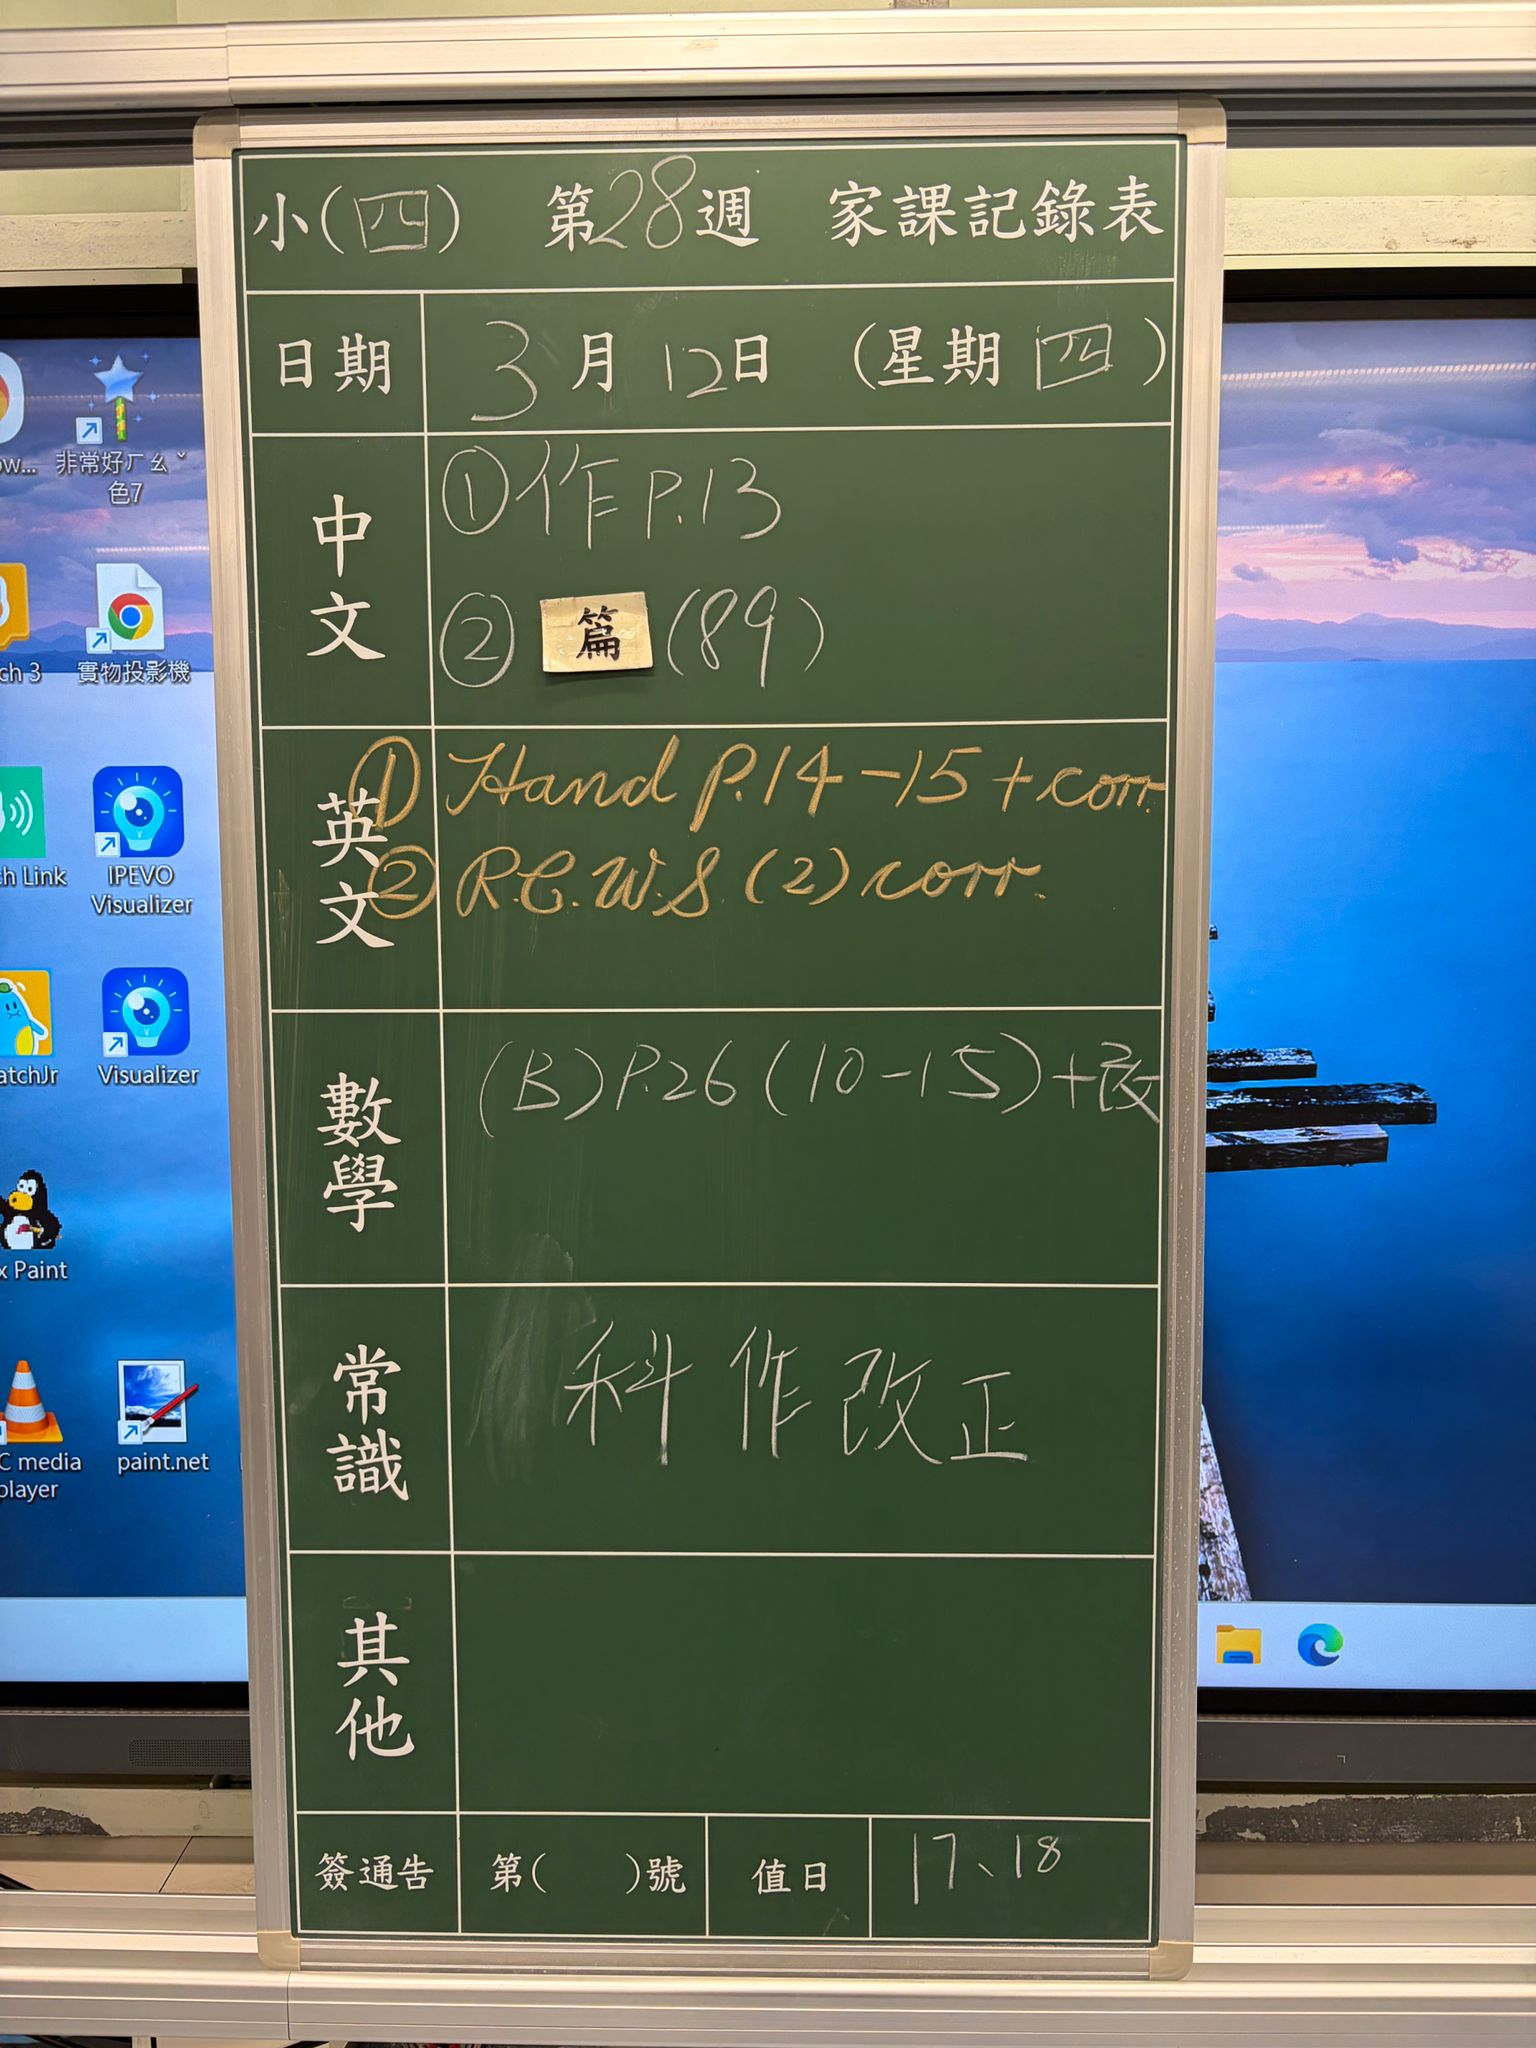 小(四) 第28週 家課記錄表
日期 3月12日 (星期四)
中文
①作P.13
②篇(89)
英文
① Hand P.14-15+corr.
② R.C.W.S.(2)corr.
數學
(B)P.26(10-15)+改
常識
科作改正
其他
簽通告 第( )號 值日 17、18
ow...
非常好ㄏㄠˇ
色7
ch 3
實物投影機
ch Link
IPEVO
Visualizer
atchJr
Visualizer
x Paint
C media
player
paint.net